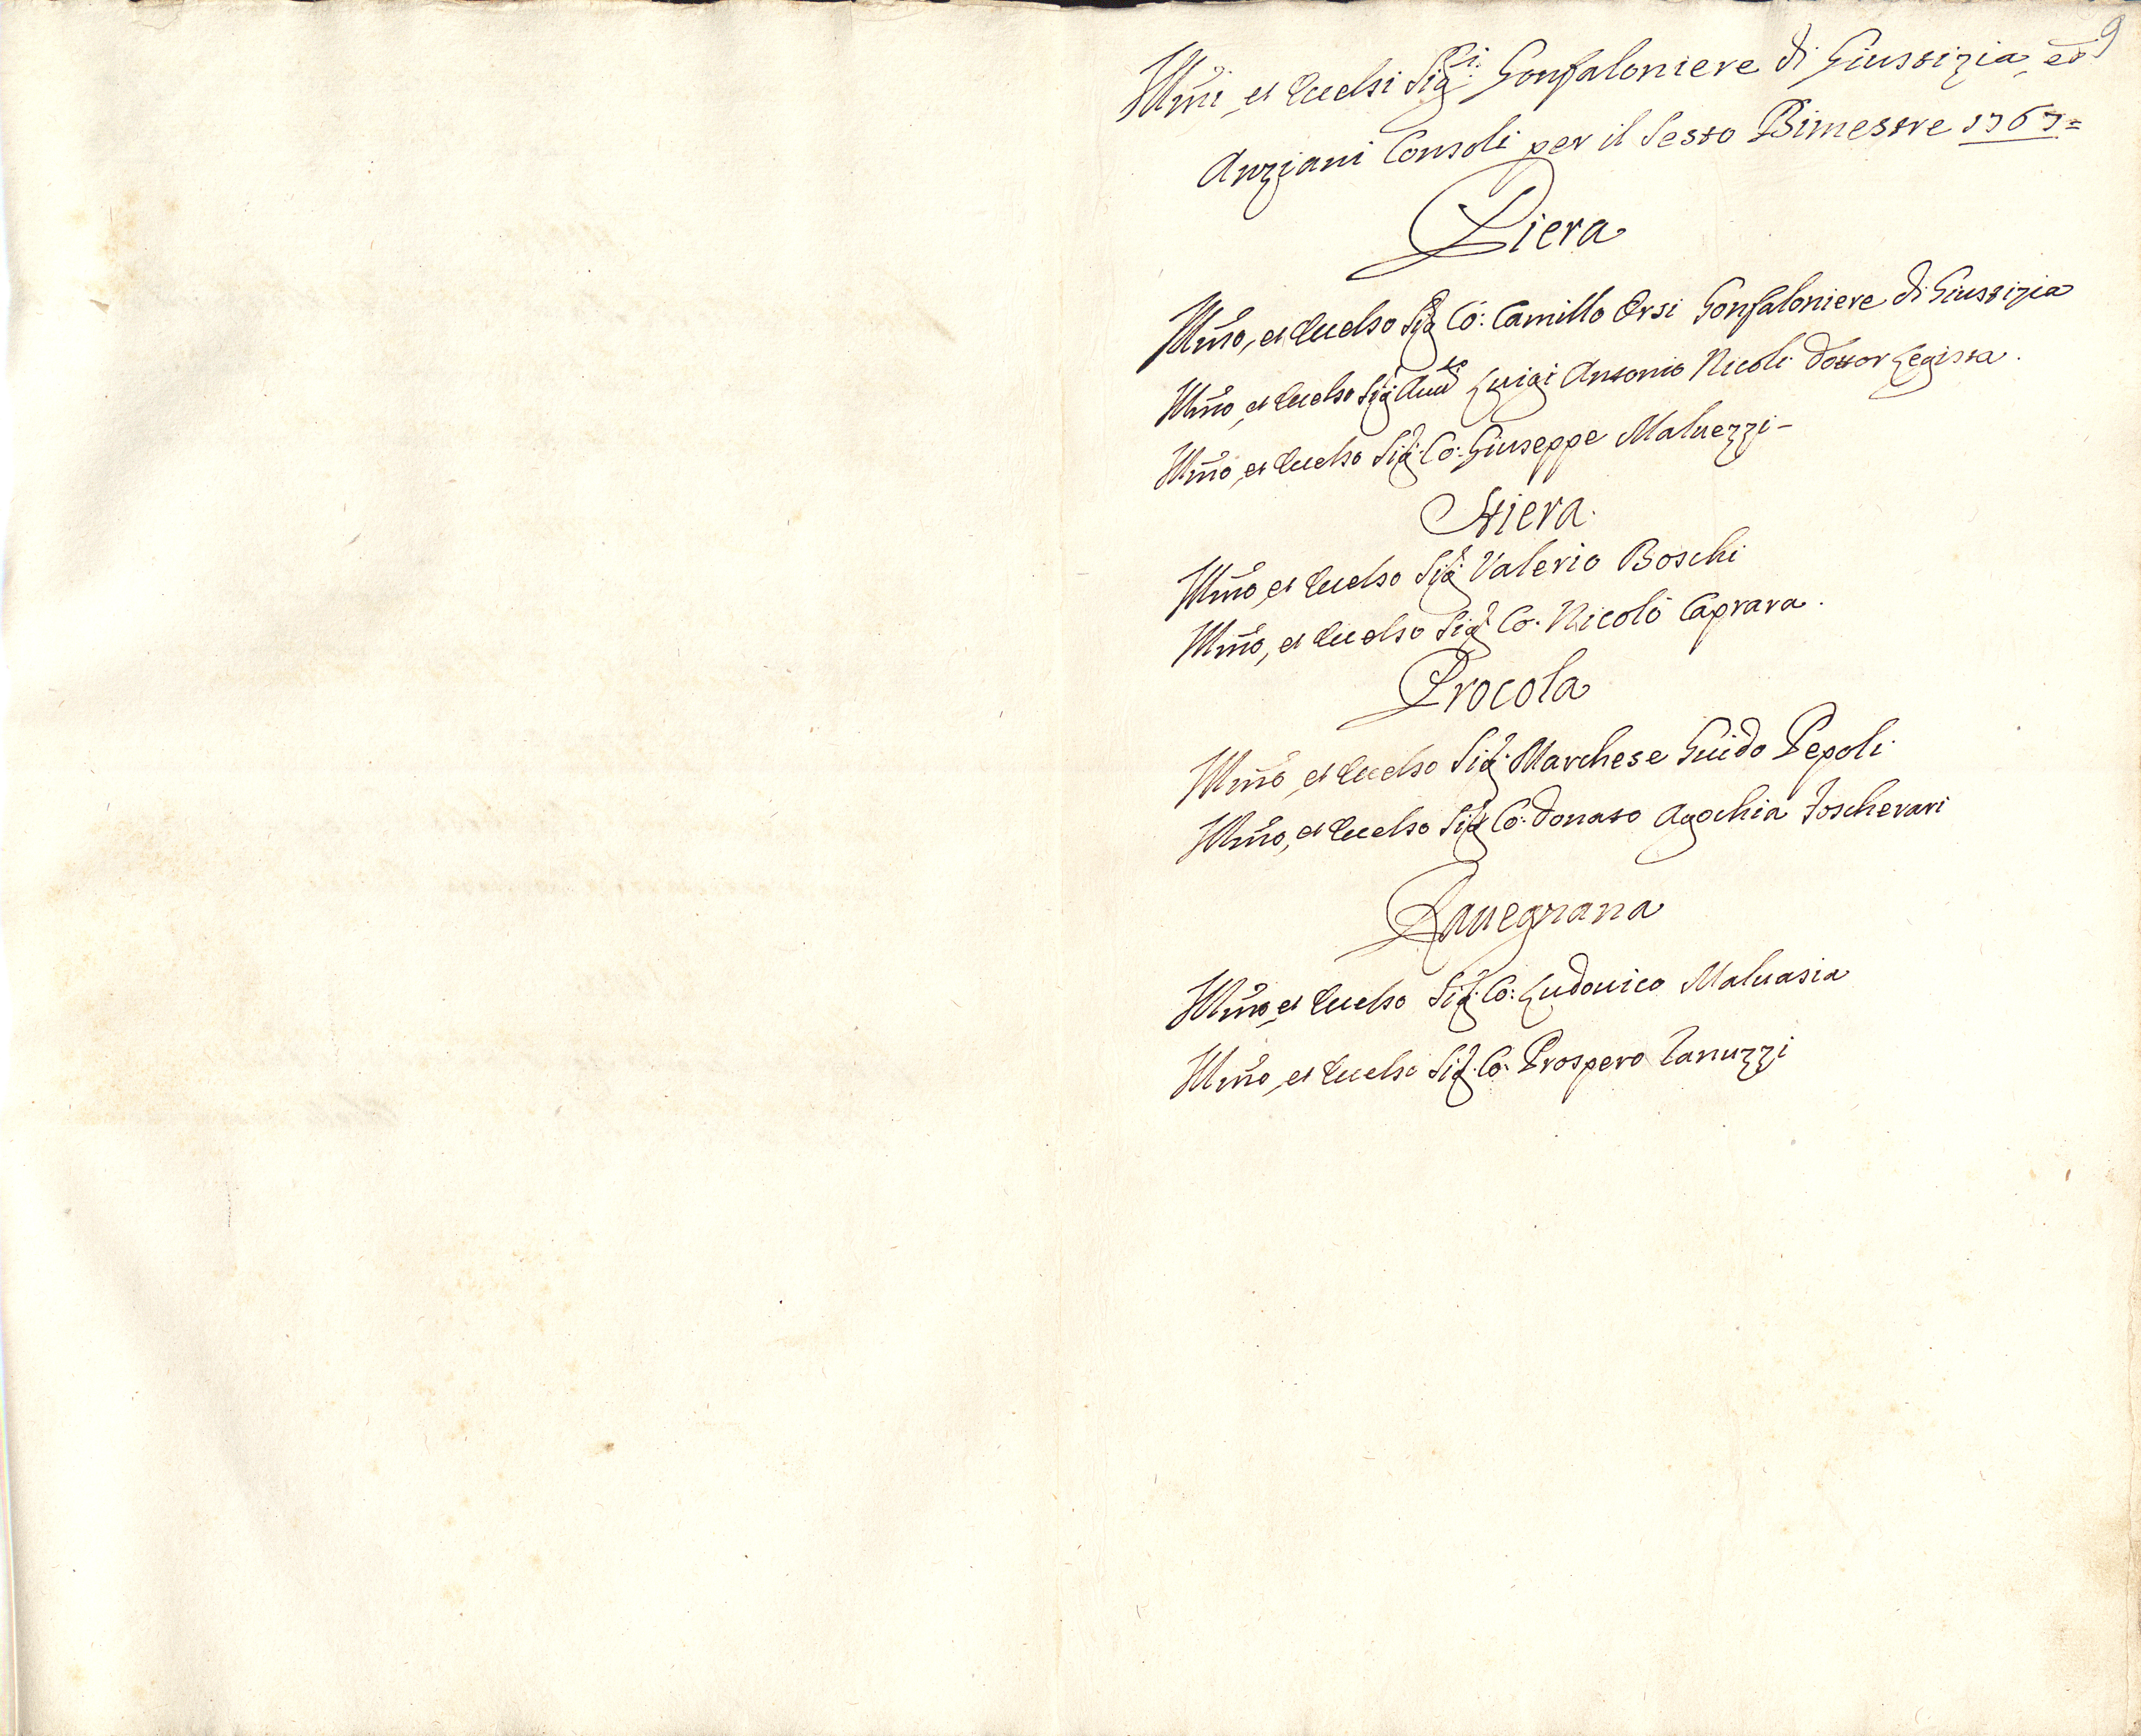 9
Illmi, et Eccelsi Sig.ri Gonfaloniere di Giustizia, ed
Anziani Consoli per il Sesto Bimestre 1767=
Piera
Illmo, et Eccelso Sig.r Co: Camillo Orsi Gonfaloniere di Giustizia
Illmo, et Eccelso Sig.r Auu.to Luigi Antonio Nicoli Dottor Legista.
Illmo, et Eccelso Sig.r Co: Giuseppe Maluezzi-
Stiera.
Illmo, et Eccelso Sig.r Valerio Boschi
Illmo, et Eccelso Sig.r Co. Nicolò Caprara.
Procola
Illmo, et Eccelso Sig.r Marchese Guido Pepoli.
Illmo, et Eccelso Sig.r Co: Donato Agochia Foscherari
Rauegnana
Illmo, et Eccelso Sig.r Co: Ludouico Maluasia
Illmo, et Eccelso Sig.r Co. Prospero Ranuzzi